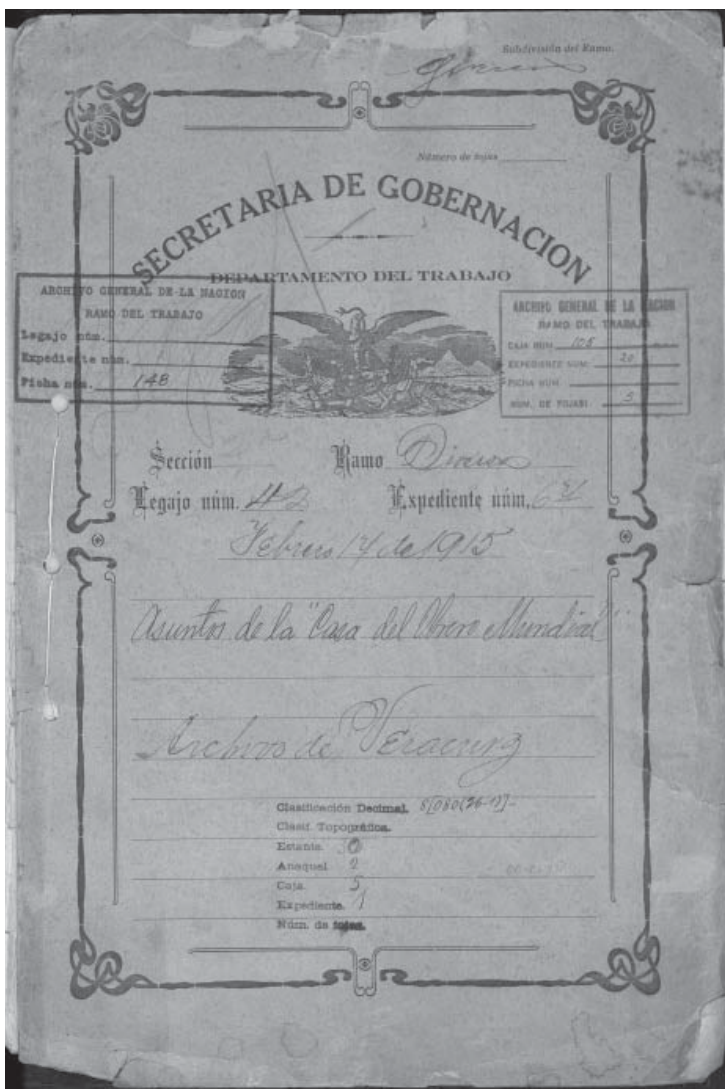 Subdivisión del Ramo.
Número de fojas
SECRETARIA DE GOBERNACION
DEPARTAMENTO DEL TRABAJO
ARCHIVO GENERAL DE LA NACION
RAMO DEL TRABAJO
Legajo núm.
Expediente núm.
Ficha núm. 148
ARCHIVO GENERAL DE LA NACION
RAMO DEL TRABAJO
CAJA NUM. 105
EXPEDIENTE NUM. 20
FICHA NUM.
NUM. DE FOJAS: 5
Sección Ramo Diversos
Legajo núm. 42 Expediente núm.
Febrero 14 de 1915
Asuntos de la "Casa del Obrero Mundial".
Archivo de Veracruz
Clasificación Decimal.
Clasif. Topográfica.
Estante.
Anaquel. 2
Caja. 5
Expediente. 1
Núm. de fojas.